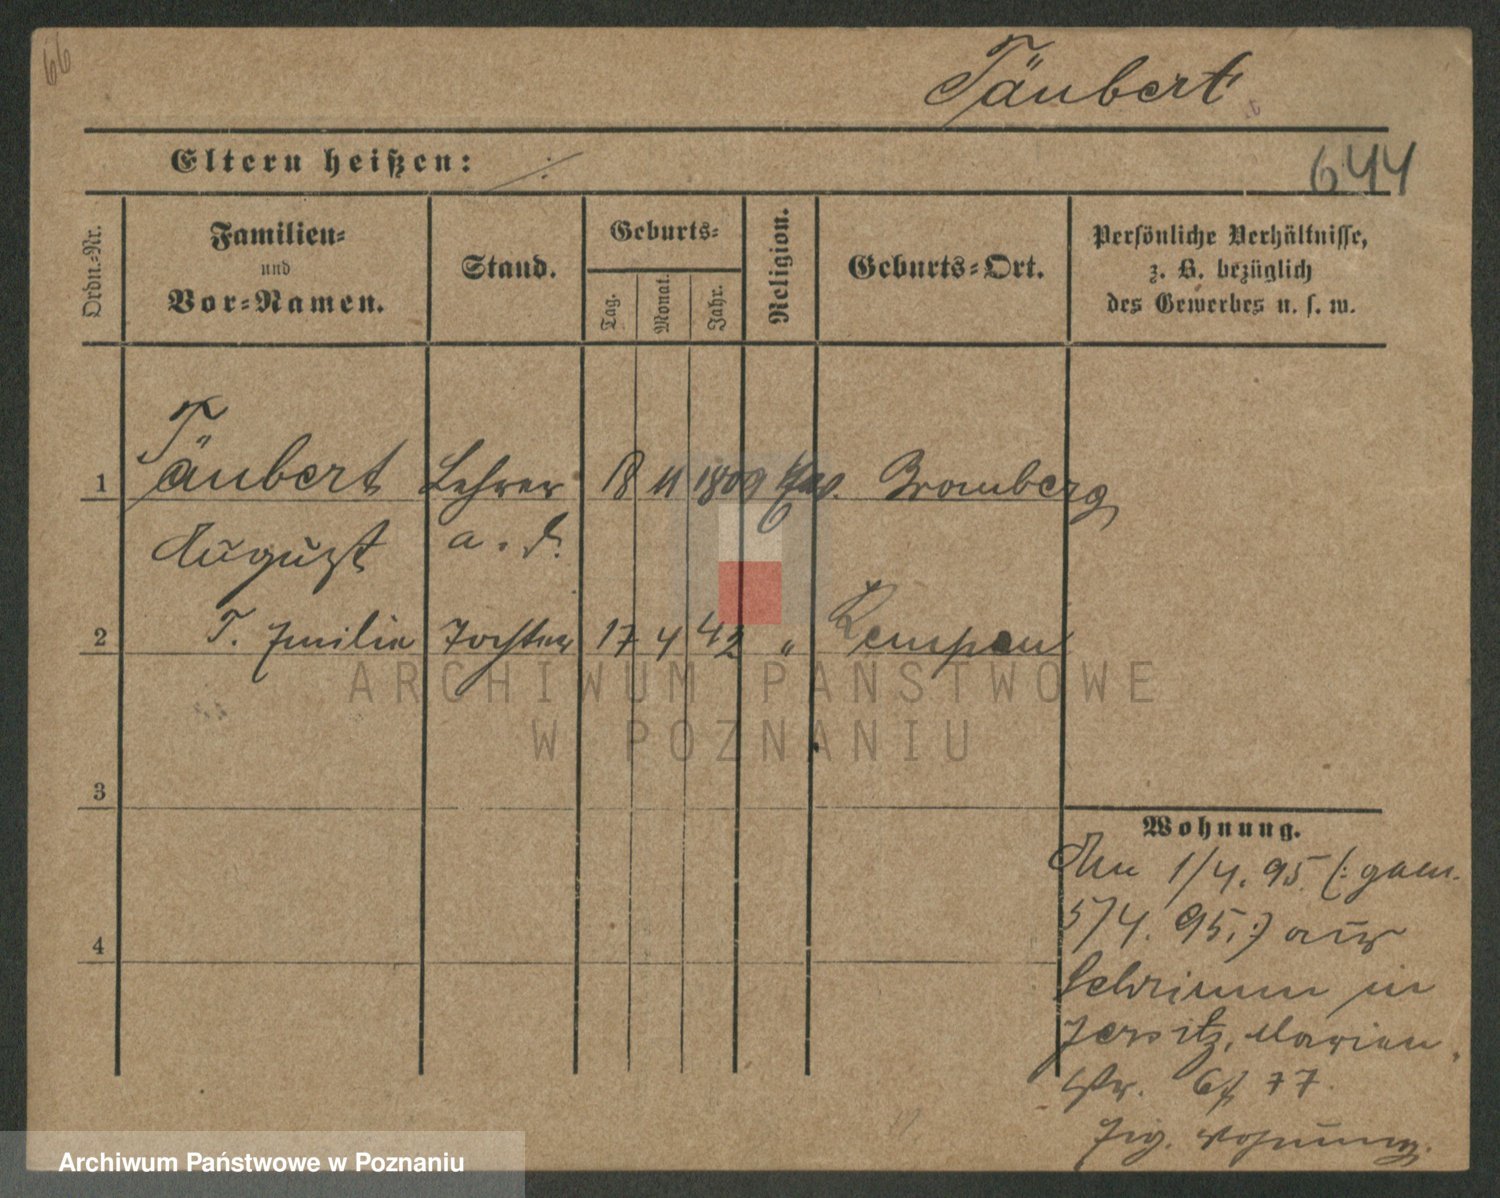 66
Täubert
Eltern heißen: ./.
644
Ordn.-Nr.
Familien-
und
Vor-Namen.
Stand.
Geburts-
Tag.
Monat.
Jahr.
Religion.
Geburts-Ort.
Persönliche Verhältnisse,
z. B. bezüglich
des Gewerbes u. s. w.
1 Täubert Lehrer 18 11 1809 Ev. Bromberg
August a. D.
2 T. Emilie Tochter 17 4 42 " Kempen
ARCHIWUM PAŃSTWOWE
W POZNANIU
3
Wohnung.
Am 1/4. 95 (: gem.
5/4. 95 :) aus
4
Schrimm in
Jersitz, Marien
Str. 77.
Eig. Wohnung.
Archiwum Państwowe w Poznaniu